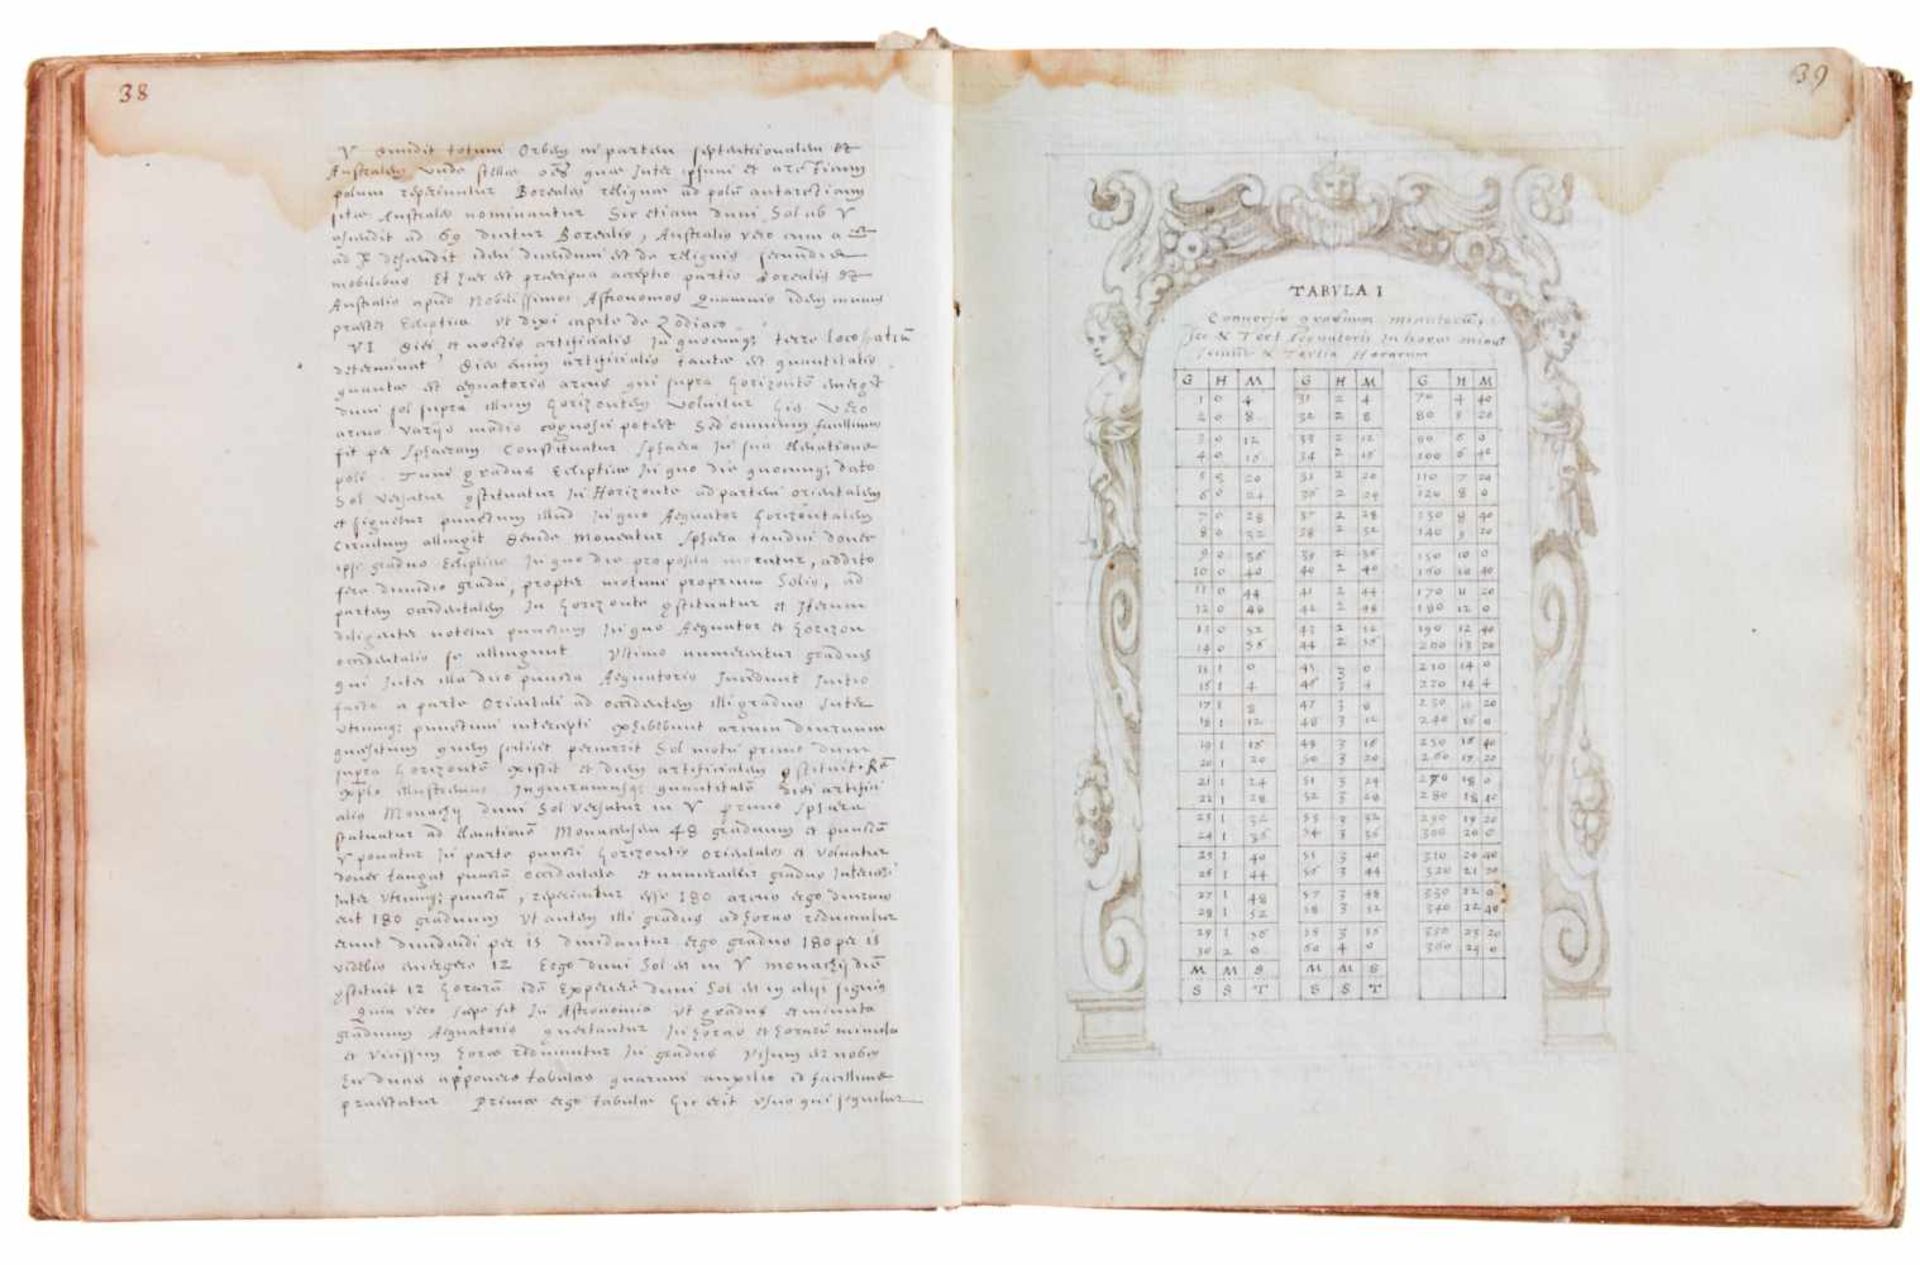 38
V dividit totum Orbem in partem septentrionalem et
Australem unde stellae oes quae Inter ipsum et arcticum
polum reperiuntur Boreales reliquae ad polu antarcticum
sitae Australes nominantur Sic etiam dum Sol ab ♈
ascendit ad 69 dicitur Borealis, Australis vero cum a ♎
ad descendit idem dicendum est de reliquis
mobilibus Et haec est praecipua acceptio partis Borealis et
Australis apud Nobilissimos Astronomos Quamvis idem munus
praestet Ecliptica ut dixi capite de Zodiaco
VI diei et noctis artificialis In quocunq; terre loco
determinat Dies enim artificialis tantae est quantitatis
quantae est aequatoris arcus qui supra horizonte emergit
dum sol supra illum horizontem volvitur his vero
arcus varijs modis cognosci potest Sed omnium facillime
fit per Sphaeram Constituatur Sphaera In sua elevatione
poli Tum gradus Eclipticae In quo die quocunq; dato
Sol versatur constituatur In Horizonte ad partem orientalem
et signetur punctum illud In quo Aequator horizontalem
Circulum attingit deinde Moveatur Sphaera tandiu donec
ipse gradus Eclipticae In quo die proposita moratur, addito
fere dimidio gradu, propter motum proprium Solis, ad
partem occidentalem In horizonte constituatur et Iterum
diligenter notetur punctum In quo Aequator et horizon
occidentalis se attingunt Ultimo numerentur gradus
qui Inter illa duo puncta Aequatoris Incidunt Initio
facto a parte Orientali ad occidentem illi gradus Inter
utrunq; punctum intercepti exhibebunt arcum diurnum
quaesitum quem scilicet percurrit Sol motu primo dum
supra horizonte existit et diem artificialem constituit. Re
explo illustremus Inquiramusq; quantitate diei artifici
alis Monachij dum Sol versatur in ♈ primo Sphaera
statuatur ad elevatione Monacensem 48 graduum et punctu
♈ ponatur In parte puncti horizontis orientalis et volvatur
donec tangat punctu occidentale et numerentur gradus Intercepti
Inter utrunq; punctu, reperientur esse 180 arcus ergo diurnus
erit 180 graduum Ut autem illi gradus ad horas reducantur
erunt dividendi per 15 dividantur ergo gradus 180 per 15
videbis emergere 12 Ergo dum Sol est in ♈ monachij die
constituit 12 horaru idem Experiere dum Sol est in alijs signis
Quia vero saepe fit In Astronomia ut gradus et minuta
graduum Aequatoris convertantur In horas et horaru minuta
et vicissim horae reducantur In gradus Visum est nobis
hic duas apponere tabulas quarum auxilio id facillime
praestatur Primae ergo tabulae hic erit usus qui sequitur
39
TABVLA I
Conversio graduum minutoru,
sec & Tert Aequatoris In horas minut
secund & Tertia Horarum
G H M G H M G H M
1 0 4 31 2 4 70 4 40
2 0 8 32 2 8 80 5 20
3 0 12 33 2 12 90 6 0
4 0 16 34 2 16 100 6 40
5 0 20 35 2 20 110 7 20
6 0 24 36 2 24 120 8 0
7 0 28 37 2 28 130 8 40
8 0 32 38 2 32 140 9 20
9 0 36 39 2 36 150 10 0
10 0 40 40 2 40 160 10 40
11 0 44 41 2 44 170 11 20
12 0 48 42 2 48 180 12 0
13 0 52 43 2 52 190 12 40
14 0 56 44 2 56 200 13 20
15 1 0 45 3 0 210 14 0
16 1 4 46 3 4 220 14 4
17 1 8 47 3 8 230 15 20
18 1 12 48 3 12 240 16 0
19 1 16 49 3 16 250 16 40
20 1 20 50 3 20 260 17 20
21 1 24 51 3 24 270 18 0
22 1 28 52 3 28 280 18 40
23 1 32 53 3 32 290 19 20
24 1 36 54 3 36 300 20 0
25 1 40 55 3 40 310 20 40
26 1 44 56 3 44 320 21 20
27 1 48 57 3 48 330 22 0
28 1 52 58 3 52 340 22 40
29 1 56 59 3 56 350 23 20
30 2 0 60 4 0 360 24 0
M M S M M S
S S T S S T